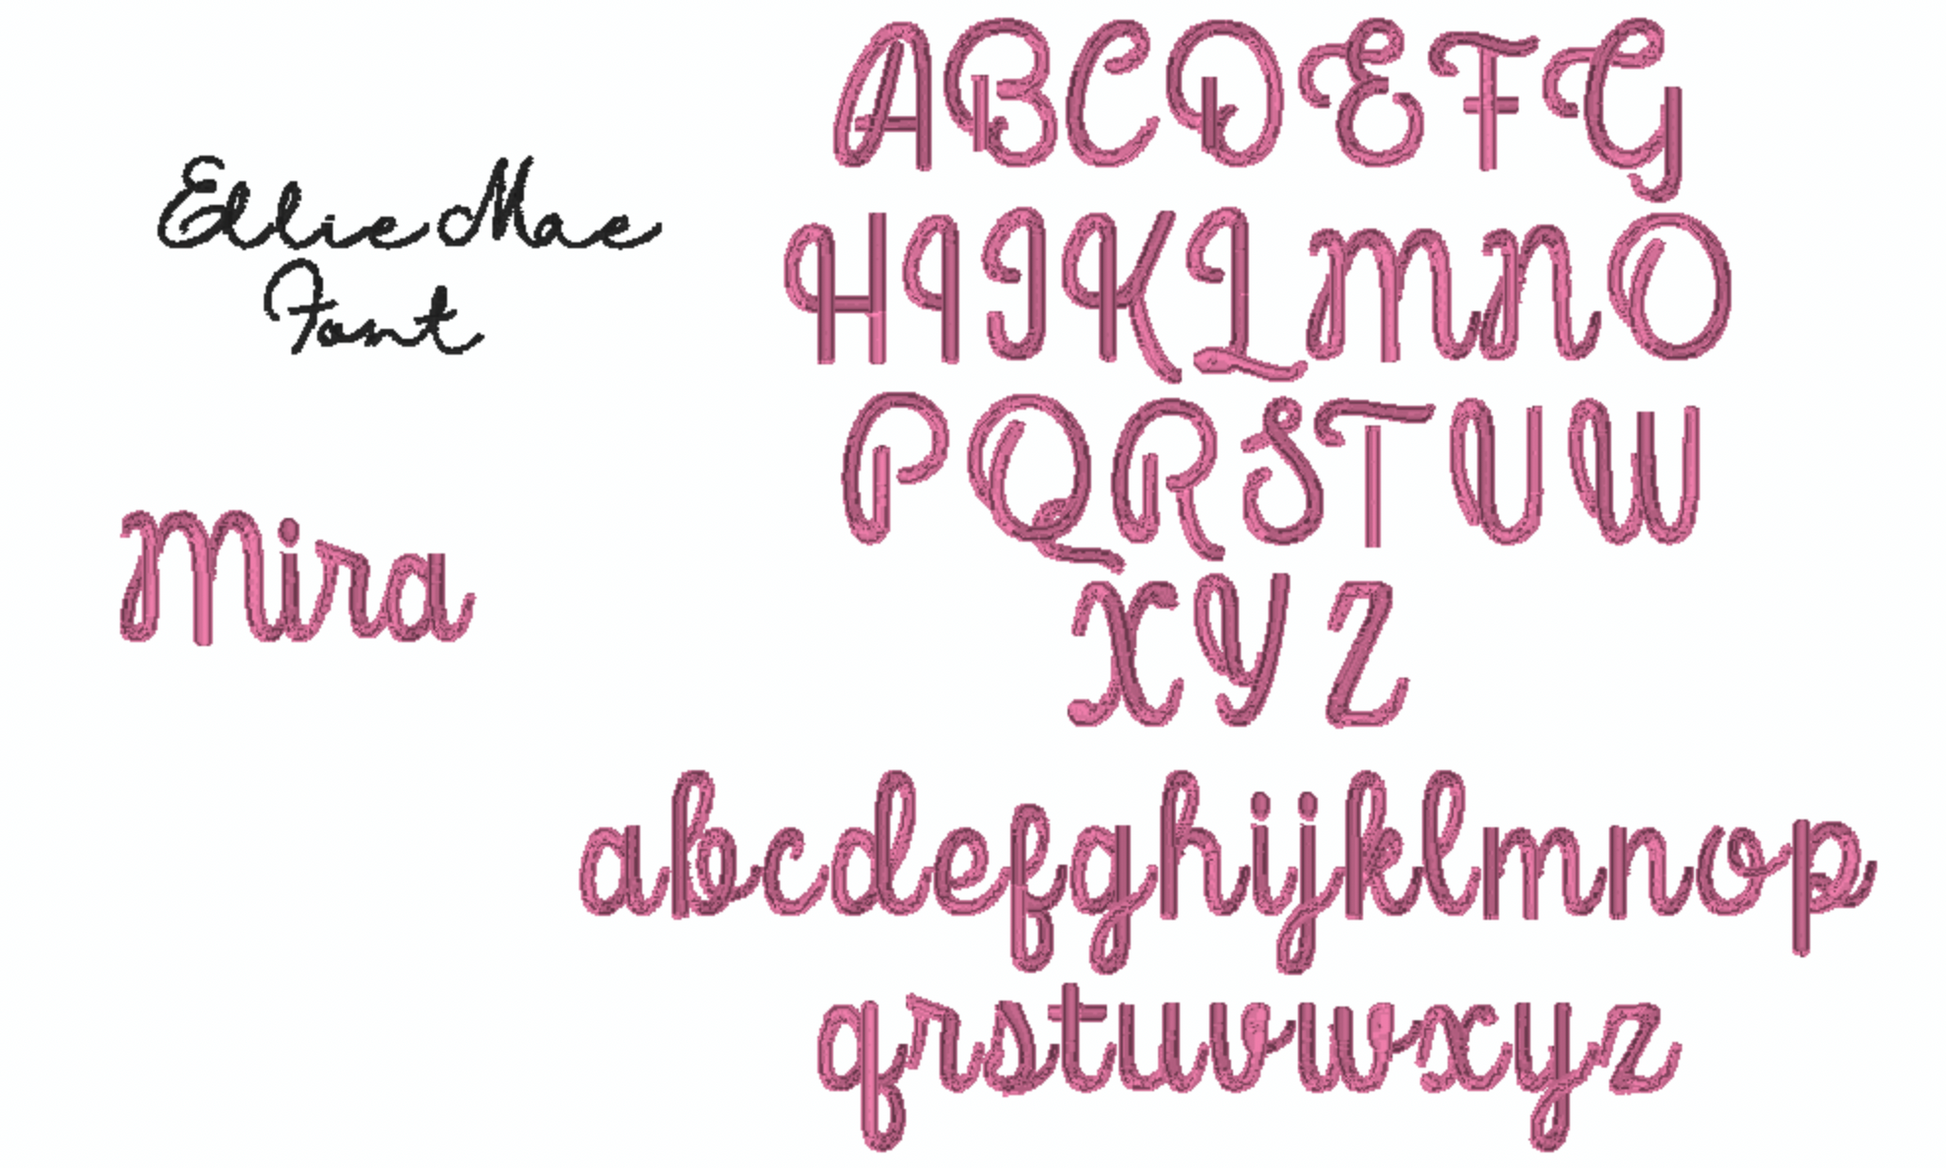 Ellie Mae
Font
Mira
ABCDEFG
HIJKLMNO
PQRSTUW
XYZ
abcdefghijklmnop
qrstuvwxyz